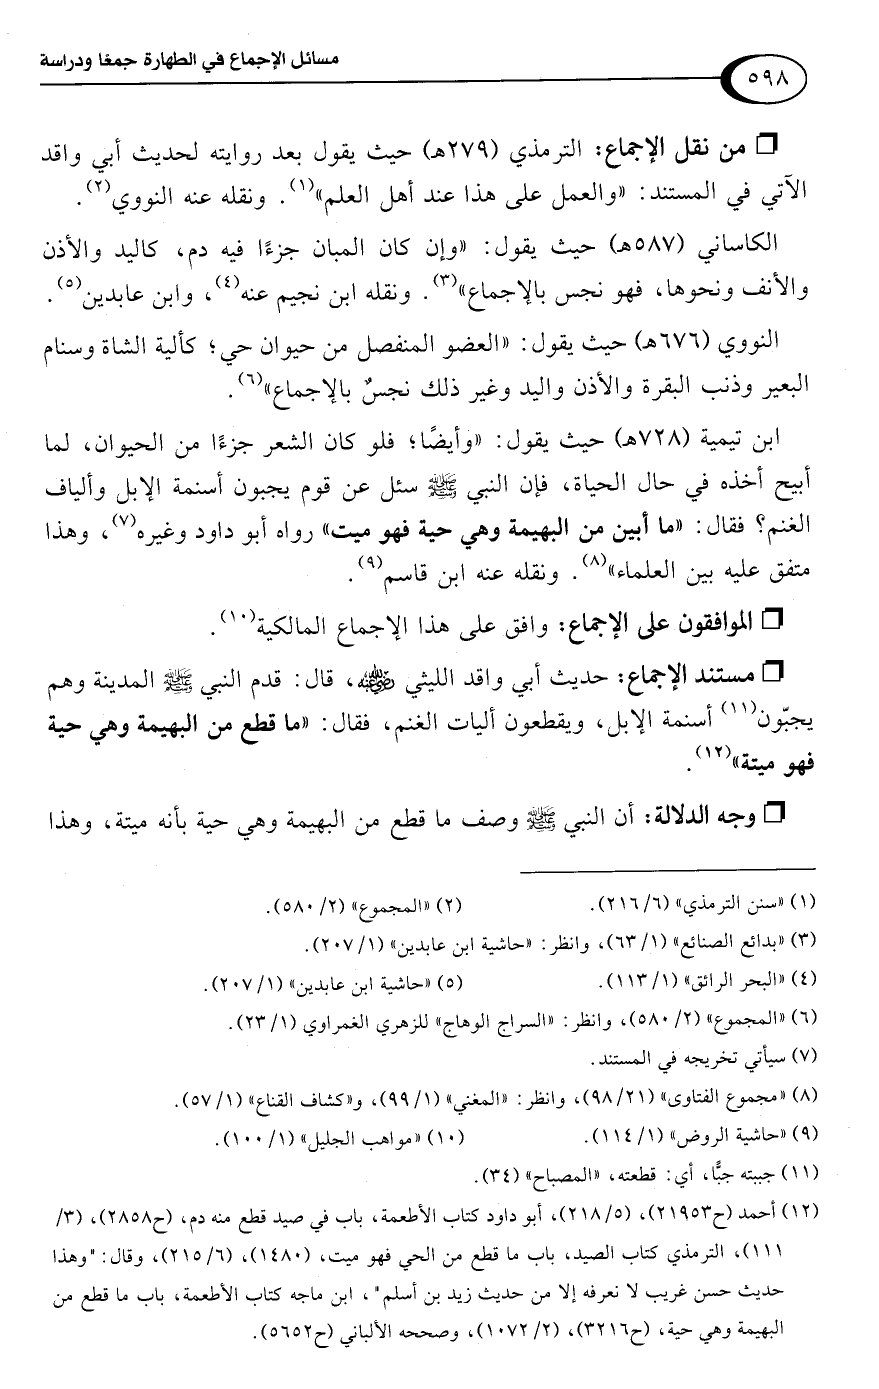 مسائل الإجماع في الطهارة جمعًا ودراسة
٥٩٨
❒ من نقل الإجماع: الترمذي (٢٧٩هـ) حيث يقول بعد روايته لحديث أبي واقد
الآتي في المستند: «والعمل على هذا عند أهل العلم»(١). ونقله عنه النووي(٢).
الكاساني (٥٨٧هـ) حيث يقول: «وإن كان المبان جزءًا فيه دم، كاليد والأذن
والأنف ونحوها، فهو نجس بالإجماع»(٣). ونقله ابن نجيم عنه(٤)، وابن عابدين(٥).
النووي (٦٧٦هـ) حيث يقول: «العضو المنفصل من حيوان حي؛ كألية الشاة وسنام
البعير وذنب البقرة والأذن واليد وغير ذلك نجسٌ بالإجماع»(٦).
ابن تيمية (٧٢٨هـ) حيث يقول: «وأيضًا؛ فلو كان الشعر جزءًا من الحيوان، لما
أبيح أخذه في حال الحياة، فإن النبي ﷺ سئل عن قوم يجبون أسنمة الإبل وألياف
الغنم؟ فقال: «ما أبين من البهيمة وهي حية فهو ميت» رواه أبو داود وغيره(٧)، وهذا
متفق عليه بين العلماء»(٨). ونقله عنه ابن قاسم(٩).
❒ الموافقون على الإجماع: وافق على هذا الإجماع المالكية(١٠).
❒ مستند الإجماع: حديث أبي واقد الليثي رضي الله عنه، قال: قدم النبي ﷺ المدينة وهم
يجبّون(١١) أسنمة الإبل، ويقطعون أليات الغنم، فقال: «ما قطع من البهيمة وهي حية
فهو ميتة»(١٢).
❒ وجه الدلالة: أن النبي ﷺ وصف ما قطع من البهيمة وهي حية بأنه ميتة، وهذا
(١) «سنن الترمذي» (٦/ ٢١٦). (٢) «المجموع» (٢/ ٥٨٠).
(٣) «بدائع الصنائع» (١/ ٦٣)، وانظر: «حاشية ابن عابدين» (١/ ٢٠٧).
(٤) «البحر الرائق» (١/ ١١٣). (٥) «حاشية ابن عابدين» (١/ ٢٠٧).
(٦) «المجموع» (٢/ ٥٨٠)، وانظر: «السراج الوهاج» للزهري الغمراوي (١/ ٢٣).
(٧) سيأتي تخريجه في المستند.
(٨) «مجموع الفتاوى» (٢١/ ٩٨)، وانظر: «المغني» (١/ ٩٩)، و«كشاف القناع» (١/ ٥٧).
(٩) «حاشية الروض» (١/ ١١٤). (١٠) «مواهب الجليل» (١/ ١٠٠).
(١١) جببته جبًّا، أي: قطعته، «المصباح» (٣٤).
(١٢) أحمد (ح٢١٩٥٣)، (٥/ ٢١٨)، أبو داود كتاب الأطعمة، باب في صيد قطع منه دم، (ح٢٨٥٨)، (٣/
١١١)، الترمذي كتاب الصيد، باب ما قطع من الحي فهو ميت، (١٤٨٠)، (٦/ ٢١٥)، وقال: "وهذا
حديث حسن غريب لا نعرفه إلا من حديث زيد بن أسلم"، ابن ماجه كتاب الأطعمة، باب ما قطع من
البهيمة وهي حية، (ح٣٢١٦)، (٢/ ١٠٧٢)، وصححه الألباني (ح٥٦٥٢).